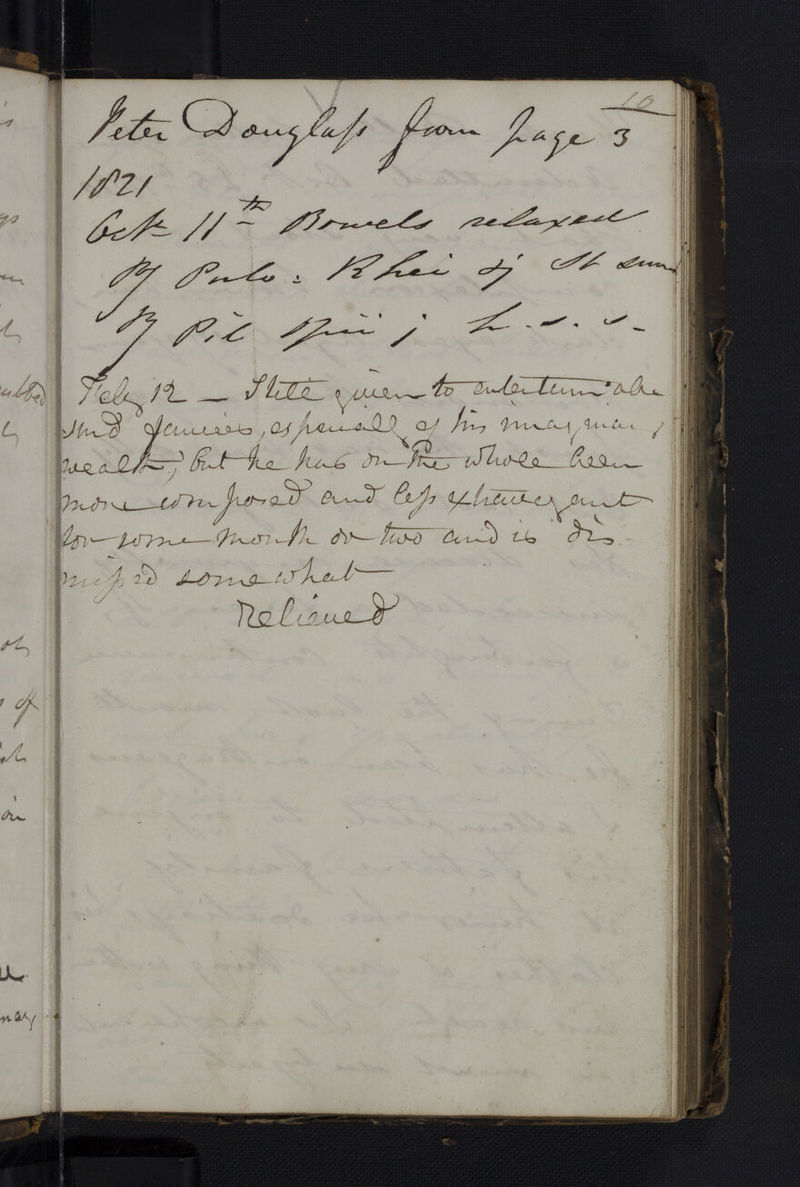 10
Peter Douglass from page 3
1821
Oct 11th Bowels relaxed
℞ Pulv: Rhei ʒj St sum
℞ Pil j h. s. s.
Feby 12 — Still given to entertain abs
urd fancies, especially of his imaginary
wealth, but he has on the whole been
more composed and less extravagant
for some month or two and is dis
missed somewhat
Relieved